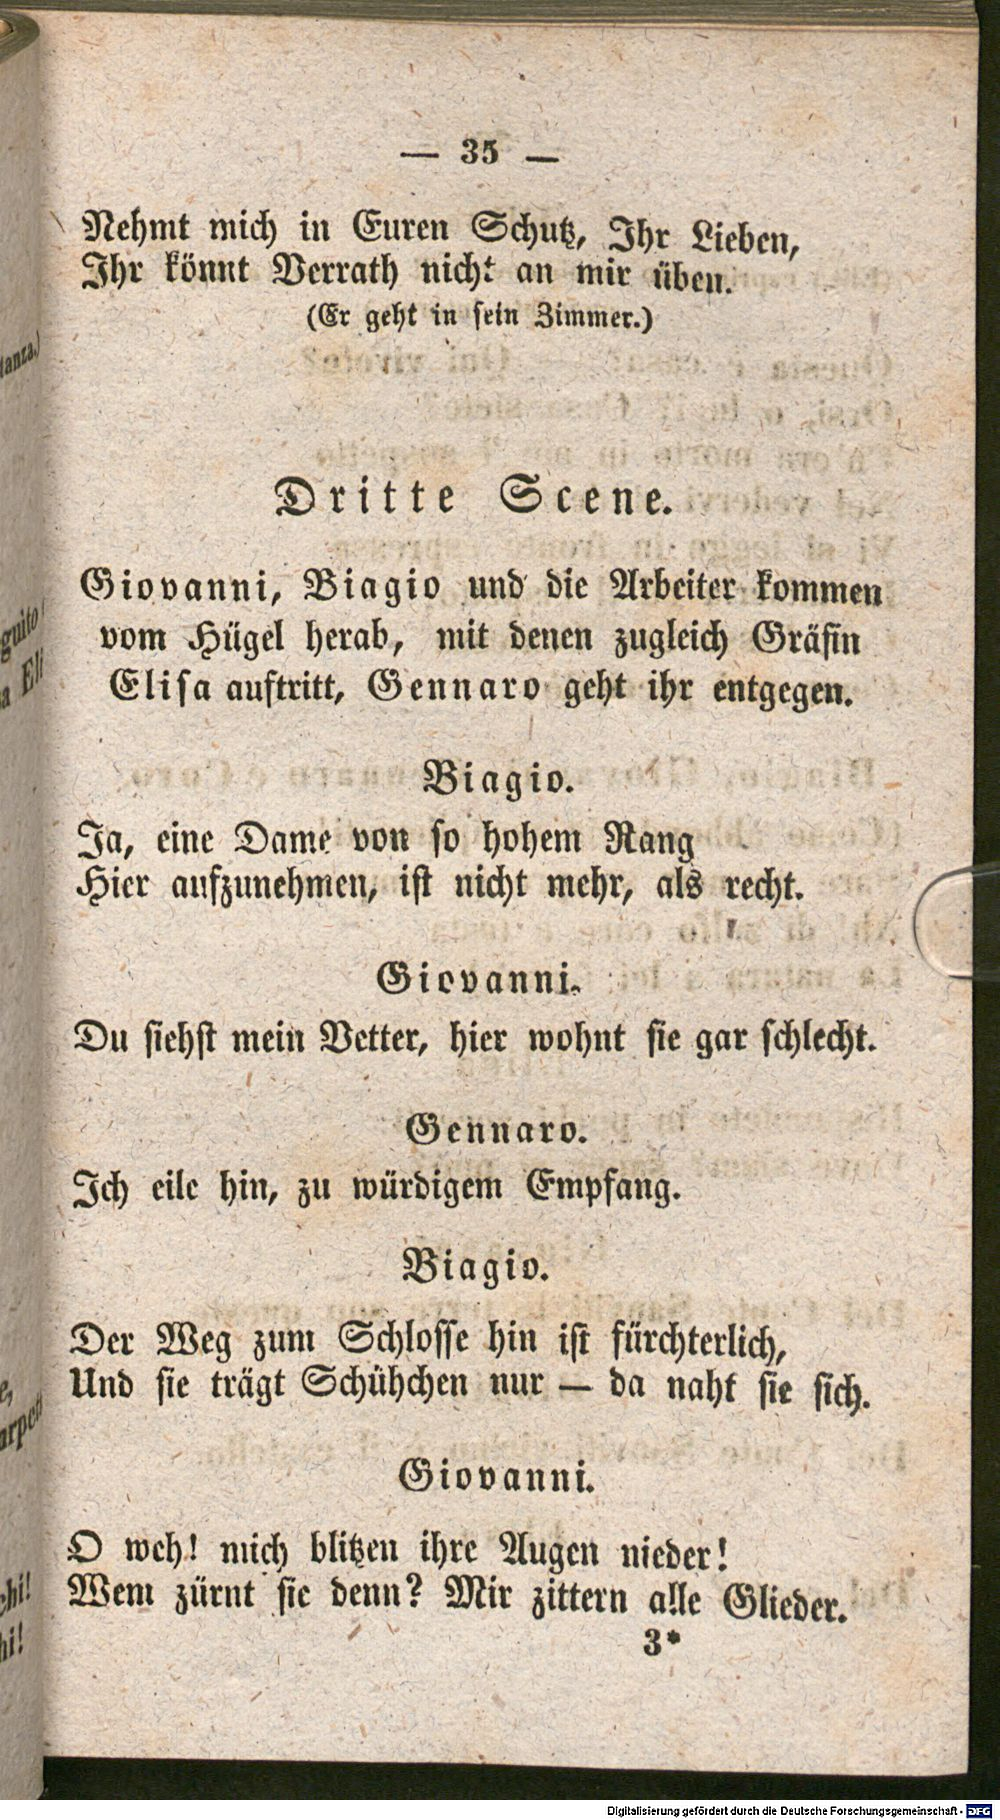 — 35 —
Nehmt mich in Euren Schutz, Ihr Lieben,
Ihr könnt Verrath nicht an mir üben.
(Er geht in sein Zimmer.)
Dritte Scene.
Giovanni, Biagio und die Arbeiter kommen
vom Hügel herab, mit denen zugleich Gräfin
Elisa auftritt, Gennaro geht ihr entgegen.
Biagio.
Ja, eine Dame von so hohem Rang
Hier aufzunehmen, ist nicht mehr, als recht.
Giovanni.
Du siehst mein Vetter, hier wohnt sie gar schlecht.
Gennaro.
Ich eile hin, zu würdigem Empfang.
Biagio.
Der Weg zum Schlosse hin ist fürchterlich,
Und sie trägt Schühchen nur — da naht sie sich.
Giovanni.
O weh! mich blitzen ihre Augen nieder!
Wem zürnt sie denn? Mir zittern alle Glieder.
3*
Digitalisierung gefördert durch die Deutsche Forschungsgemeinschaft - DFG